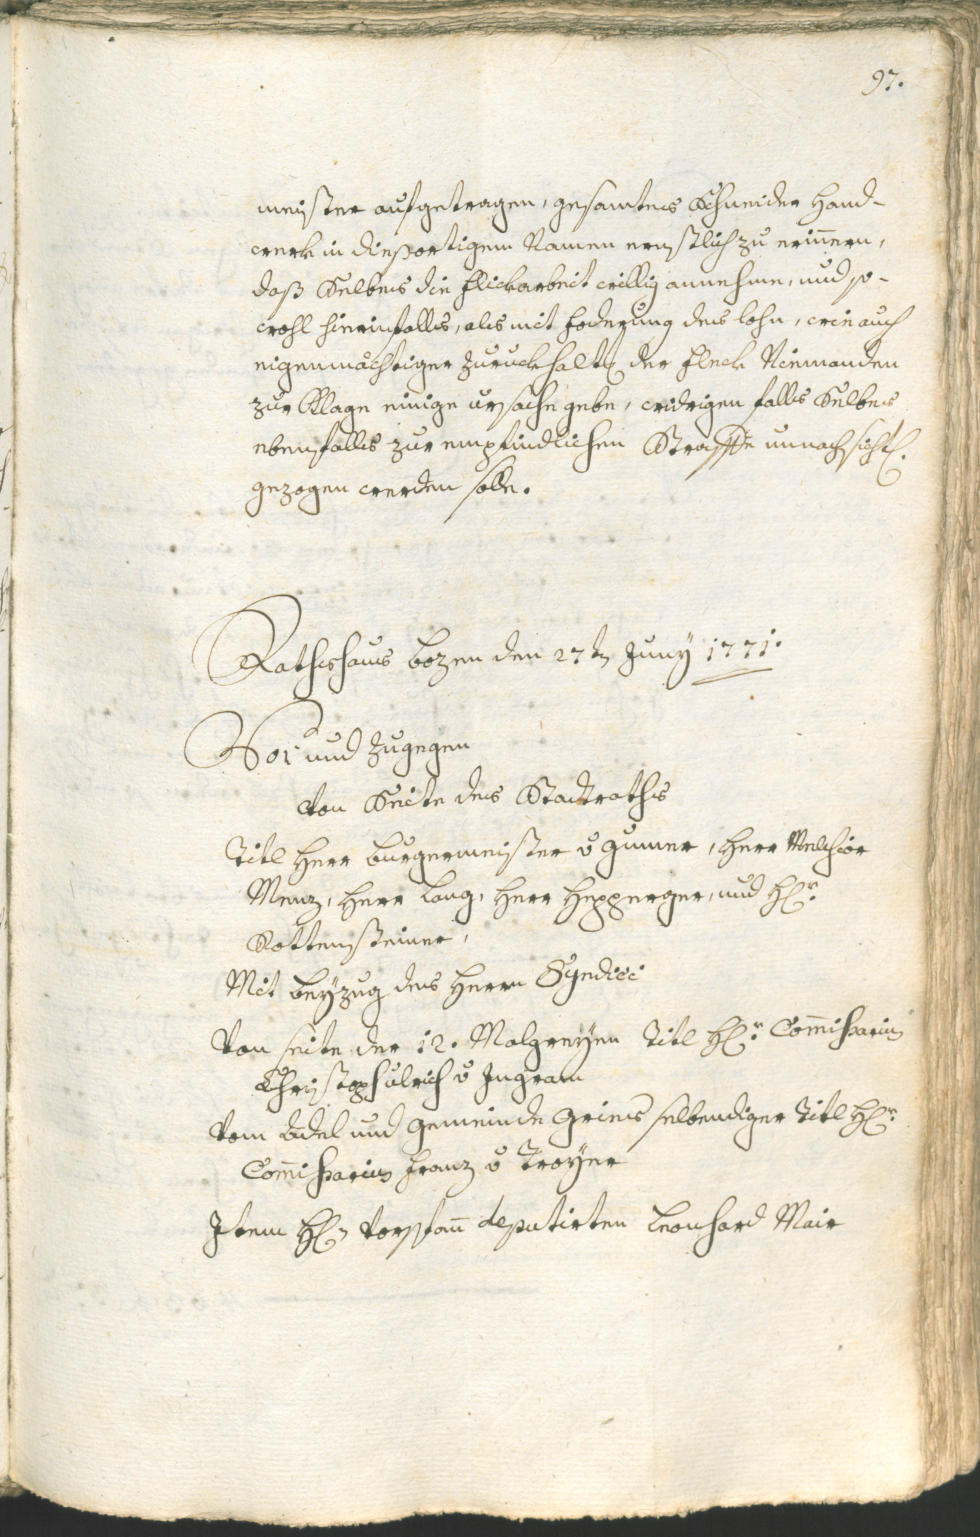 97.
meister aufgetragen, gesamtes Schneider Hand-
werk in diessortigem Namen ernstlich zu erinnern,
daß Selbes die Flickarbeit willig annehme, und so-
wohl hierinfalls, als mit Foderung des lohn, wie auch
eigenmächtiger Zuruckhaltg der Fleck Niemanden
zur Klage einige ursache gebe, widrigen falls Selbes
ebenfalls zur empfindlichen Straffe unnachsichtl.
gezogen werden solle.
Rathshaus bozen den 27tn Juny 1771.
Vor und Zugegen
Von Seite des Stadtraths
Titl Herr burgermeister v Gumer, Herr Melchior
Menz, Herr Lang, Herr Hepperger, und Hr.
Rottensteiner,
Mit beyzug des Herrn Syndici
Von seite der 12. Malgreyen Titl Hr. Com̄issarius
Christoph ulrich v Ingram
Vom Adel und Gemeinde Gries selbendiger Titl Hr.
Com̄issarius Franz v Troyer
Item H. Vorstan̄ deputirten Leonhard Mair